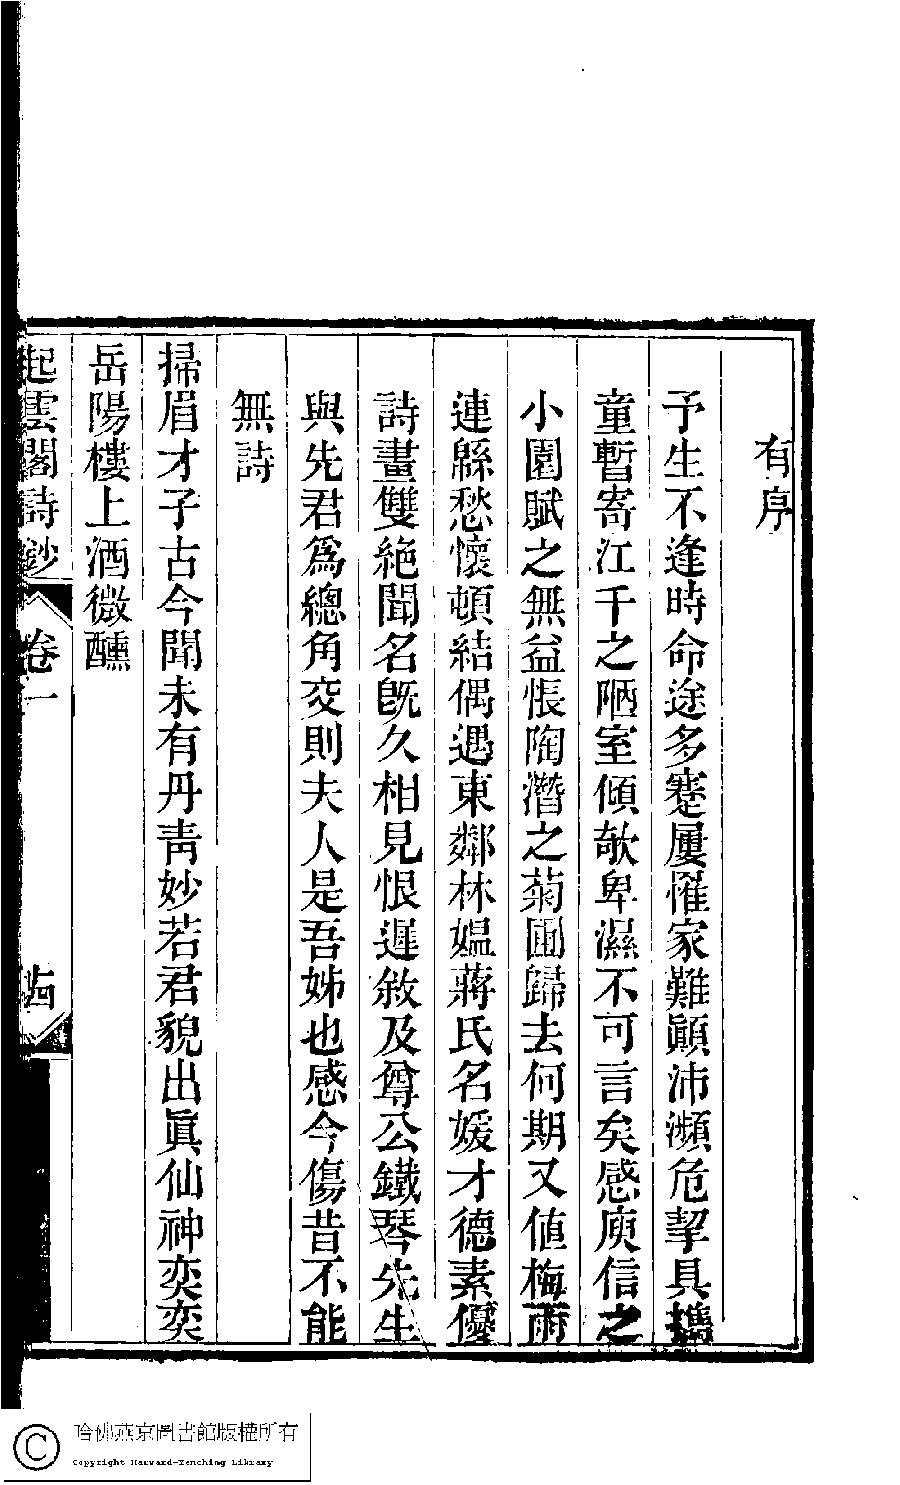 有序
予生不逢時命途多蹇屢罹家難顚沛瀕危挈具攜
童暫寄江干之陋室傾欹卑濕不可言矣感庾信之
小園賦之無益悵陶潛之菊圃歸去何期又値梅雨
連緜愁懷頓結偶遇東鄰林媼蔣氏名媛才德素優
詩畫雙絶聞名旣久相見恨遲敘及尊公鐵琴先生
與先君爲總角交則夫人是吾姊也感今傷昔不能
無詩
掃眉才子古今聞未有丹靑妙若君貌出眞仙神奕奕
岳陽樓上酒微醺
起雲閣詩鈔
卷一
哈佛燕京圖書館版權所有
Copyright Harvard-Yenching Library